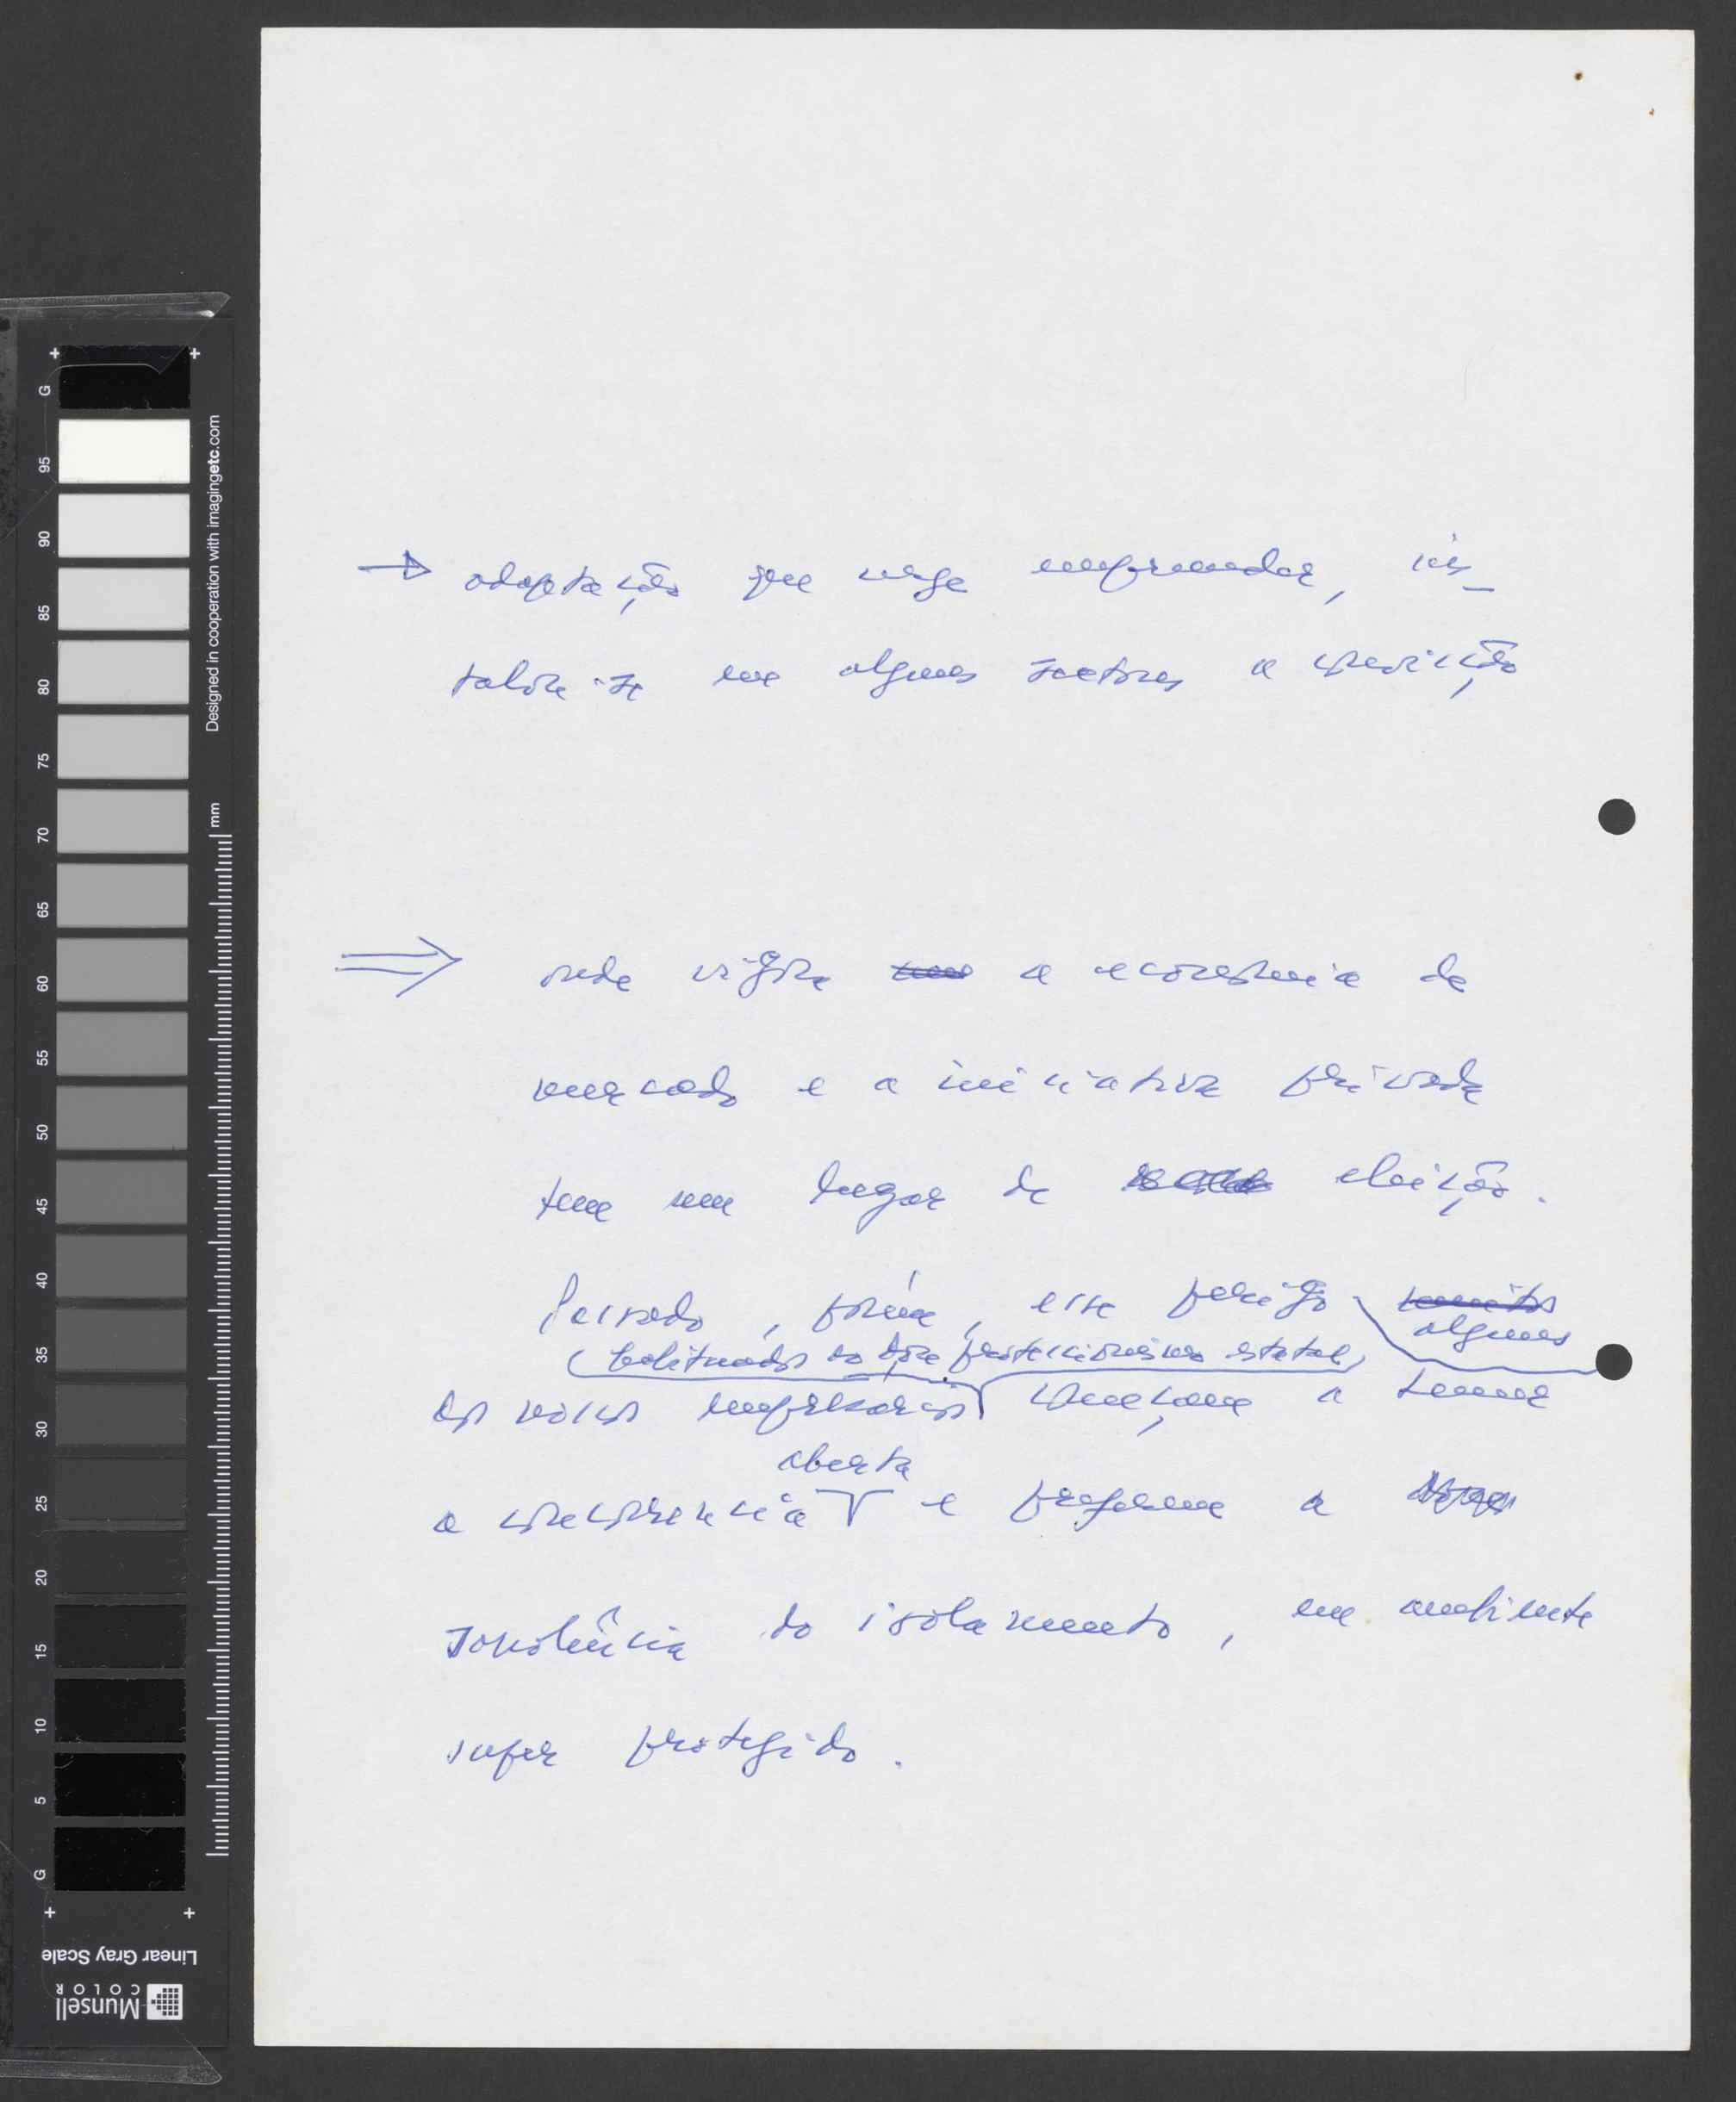 G
95
90
85
80
75
70
65
60
55
50
45
40
35
30
25
20
15
10
5
G
Designed in cooperation with imagingetc.com
mm
Linear Gray Scale
Munsell
COLOR
→ adaptação que urge empreender, ins-
tala-se em alguns sectores a convicção
⇒ onde vigora a economia de
mercado e a iniciativa privada
tem um lugar de eleição.
Passado, porém, esse perigo muitos
alguns
(habituados ao proteccionismo estatal)
dos nossos empresários começam a temer
aberta
a concorrência e preferem a
sonolência do isolamento, em ambiente
super protegido.